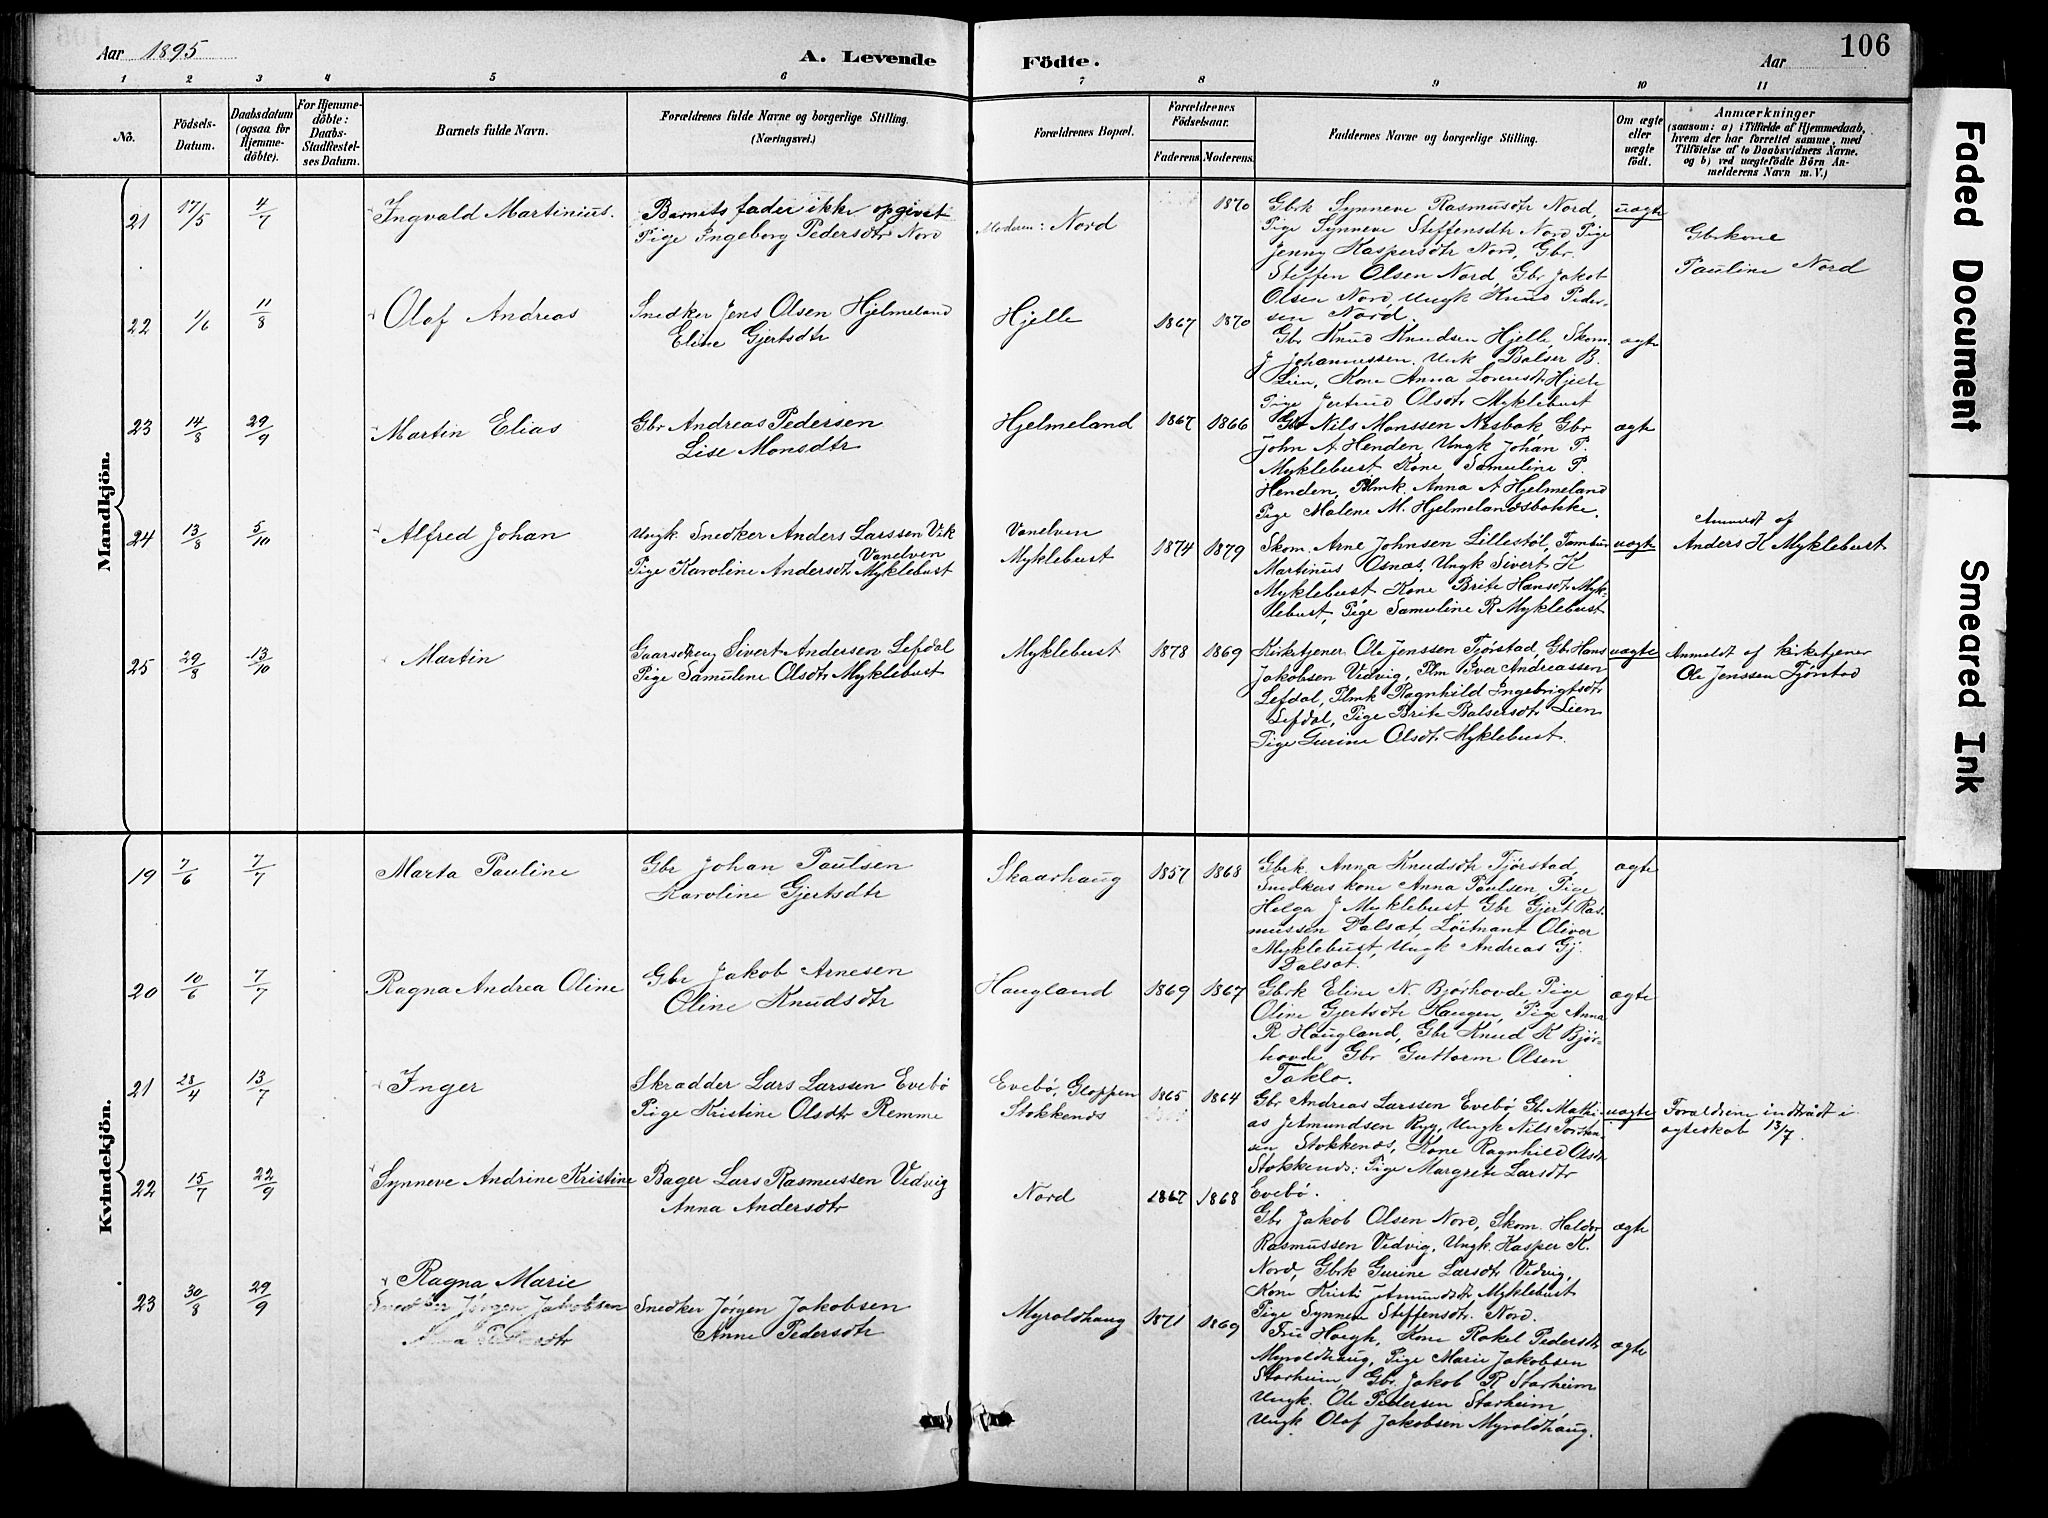 Aar 1895
A. Levende
Födte.
Aar
106
1 2 3 4 5 6 7 8 9 10 11
No.
Födsels-Datum.
Daabsdatum (ogsaa for Hjemmedöbte).
For Hjemmedöbte: Daabs-Stadfestelses Datum.
Barnets fulde Navn.
Forældrenes fulde Navne og borgerlige Stilling. (Næringsvei.)
Forældrenes Bopæl.
Forældrenes Födselsaar.
Faderens. Moderens.
Faddernes Navne og borgerlige Stilling.
Om ægte eller uægte födt.
Anmærkninger
(saasom: a) i Tilfælde af Hjemmedaab, hvem der har forrettet samme, med Tilföielse af to Daabsvidners Navne. og b) ved uægtefödte Börn Anmelderens Navn m. V.)
Mandkjön.
21 17/5 4/7 Ingvald Martinius.
Barnets fader ikke opgivet
Pige Ingeborg Pedersdtr Nord
Moderen: Nord
1870
Gbrk Synneve Rasmusdtr Nord,
Pige Synneve Steffensdtr Nord Pige
Jenny Kaspersdtr Nord, Gbr.
Steffen Olsen Nord, Gbr Jakob
Olsen Nord, Ungk Knud Peder-
sen Nord.
uægte
Gbrkone
Pauline Nord
22 1/6 11/8 Olaf Andreas
Snedker Jens Olsen Hjelmeland
Eline Gjertsdtr
Hjelle
1867 1870
Gbr Knud Knudsen Hjelle, Skom.
J Johannessen, Ungk Balser B.
Lien, Kone Anna Lorensdtr Hjelle
Pige Jertrud Olsdtr Myklebust
ægte
23 14/8 29/9 Martin Elias
Gbr Andreas Pedersen
Lise Monsdtr
Hjelmeland
1867 1866
Gbr Nils Monssen Nesbak Gbr
John A Henden, Ungk Johan P.
Myklebust Kone Samuline P.
Henden, Plmk. Anna A Hjelmeland
Pige Malene M. Hjelmelandsbakke.
ægte
24 13/8 5/10 Alfred Johan
Ungk Snedker Anders Larssen Vik
Vanelven
Pige Karoline Andersdtr Myklebust
Vanelven
Myklebust
1874 1879
Skom. Arne Johnsen Lillestøl, Tambur
Martinus Osnes, Ungk Sivert K
Myklebust Kone Brite Hansdtr Myk-
lebust, Pige Samuline R Myklebust
uægte
Anmeldt af
Anders H Myklebust
25 29/8 13/10 Martin
Gaardbrug Sivert Andersen Lefdal
Pige Samulene Olsdtr Myklebust
Myklebust
1878 1869
Kirketjener Ole Jenssen Tjørstad, Gbr Hans
Jakobsen Vedvig, Plm Iver Andreassen
Lefdal, Plmk Ragnhild Ingebrigtsdtr
Lefdal, Pige Brite Balsersdtr Lien
Pige Gurine Olsdtr Myklebust.
uægte
Anmeldt af Kirketjener
Ole Jenssen Tjørstad
Kvindekjön.
19 7/6 7/7 Marta Pauline
Gbr Johan Paulsen
Karoline Gjertsdtr
Skaarhaug
1857 1868
Gbrk. Anna Knudsdtr Tjørstad,
Snedkers kone Anna Paulsen, Pige
Helga J Myklebust Gbr Gjert Ras-
mussen Dalsat, Løitnant Oliver
Myklebust, Ungk Andreas Gj.
Dalsat.
ægte
20 10/6 7/7 Ragna Andrea Oline
Gbr Jakob Arnesen
Oline Knudsdtr
Haugland
1869 1867
Gbrk Eline N. Bjørhovde Pige
Oline Gjertsdtr Haugen, Pige Anna
R Haugland, Gbr Knud K Bjør-
hovde Gbr Guttorm Olsen
Taklo.
ægte
21 28/4 13/7 Inger
Skrædder Lars Larssen Evebö
Pige Kristine Olsdtr Remme
Evebö, Gloppen
Stokkenes
1865 1864
Gbr Andreas Larssen Evebö, Gbr Mathi-
as Jetmundsen Ryg, Ungk Nils Torsten-
sen Stokkenes, Kone Ragnhild Olsdtr
Stokkenes: Pige Margrete Larsdtr
Evebö.
uægte
Forældrene indtraadt i
ægteskab 13/7.
22 15/7 22/9 Synneve Andrine Kristine
Bager Lars Rasmussen Vedvig
Anna Andersdtr
Nord
1867 1868
Gbr Jakob Olsen Nord, Skom. Haldor
Rasmussen Vedvig, Ungk. Kasper K.
Nord, Gbrk Gurine Larsdtr Vedvig,
Kone Kristi Jetmundsdtr Myklebust
Pige Synneve Steffensdtr. Nord.
ægte
23 30/8 29/9 Ragna Marie
Snedker Jörgen Jakobsen
Anna Pedersdtr
Snedker Jörgen Jakobsen
Anne Pedersdtr
Myroldhaug
1871 1869
Fru Høegh, Kone Rakel Pedersdtr
Myroldhaug, Pige Marie Jakobsen
Starheim, Gbr. Jakob R Starheim
Ungk. Ole Pedersen Starheim,
Ungk Olaf Jakobsen Myroldhaug.
ægte
Faded Document
Smeared Ink